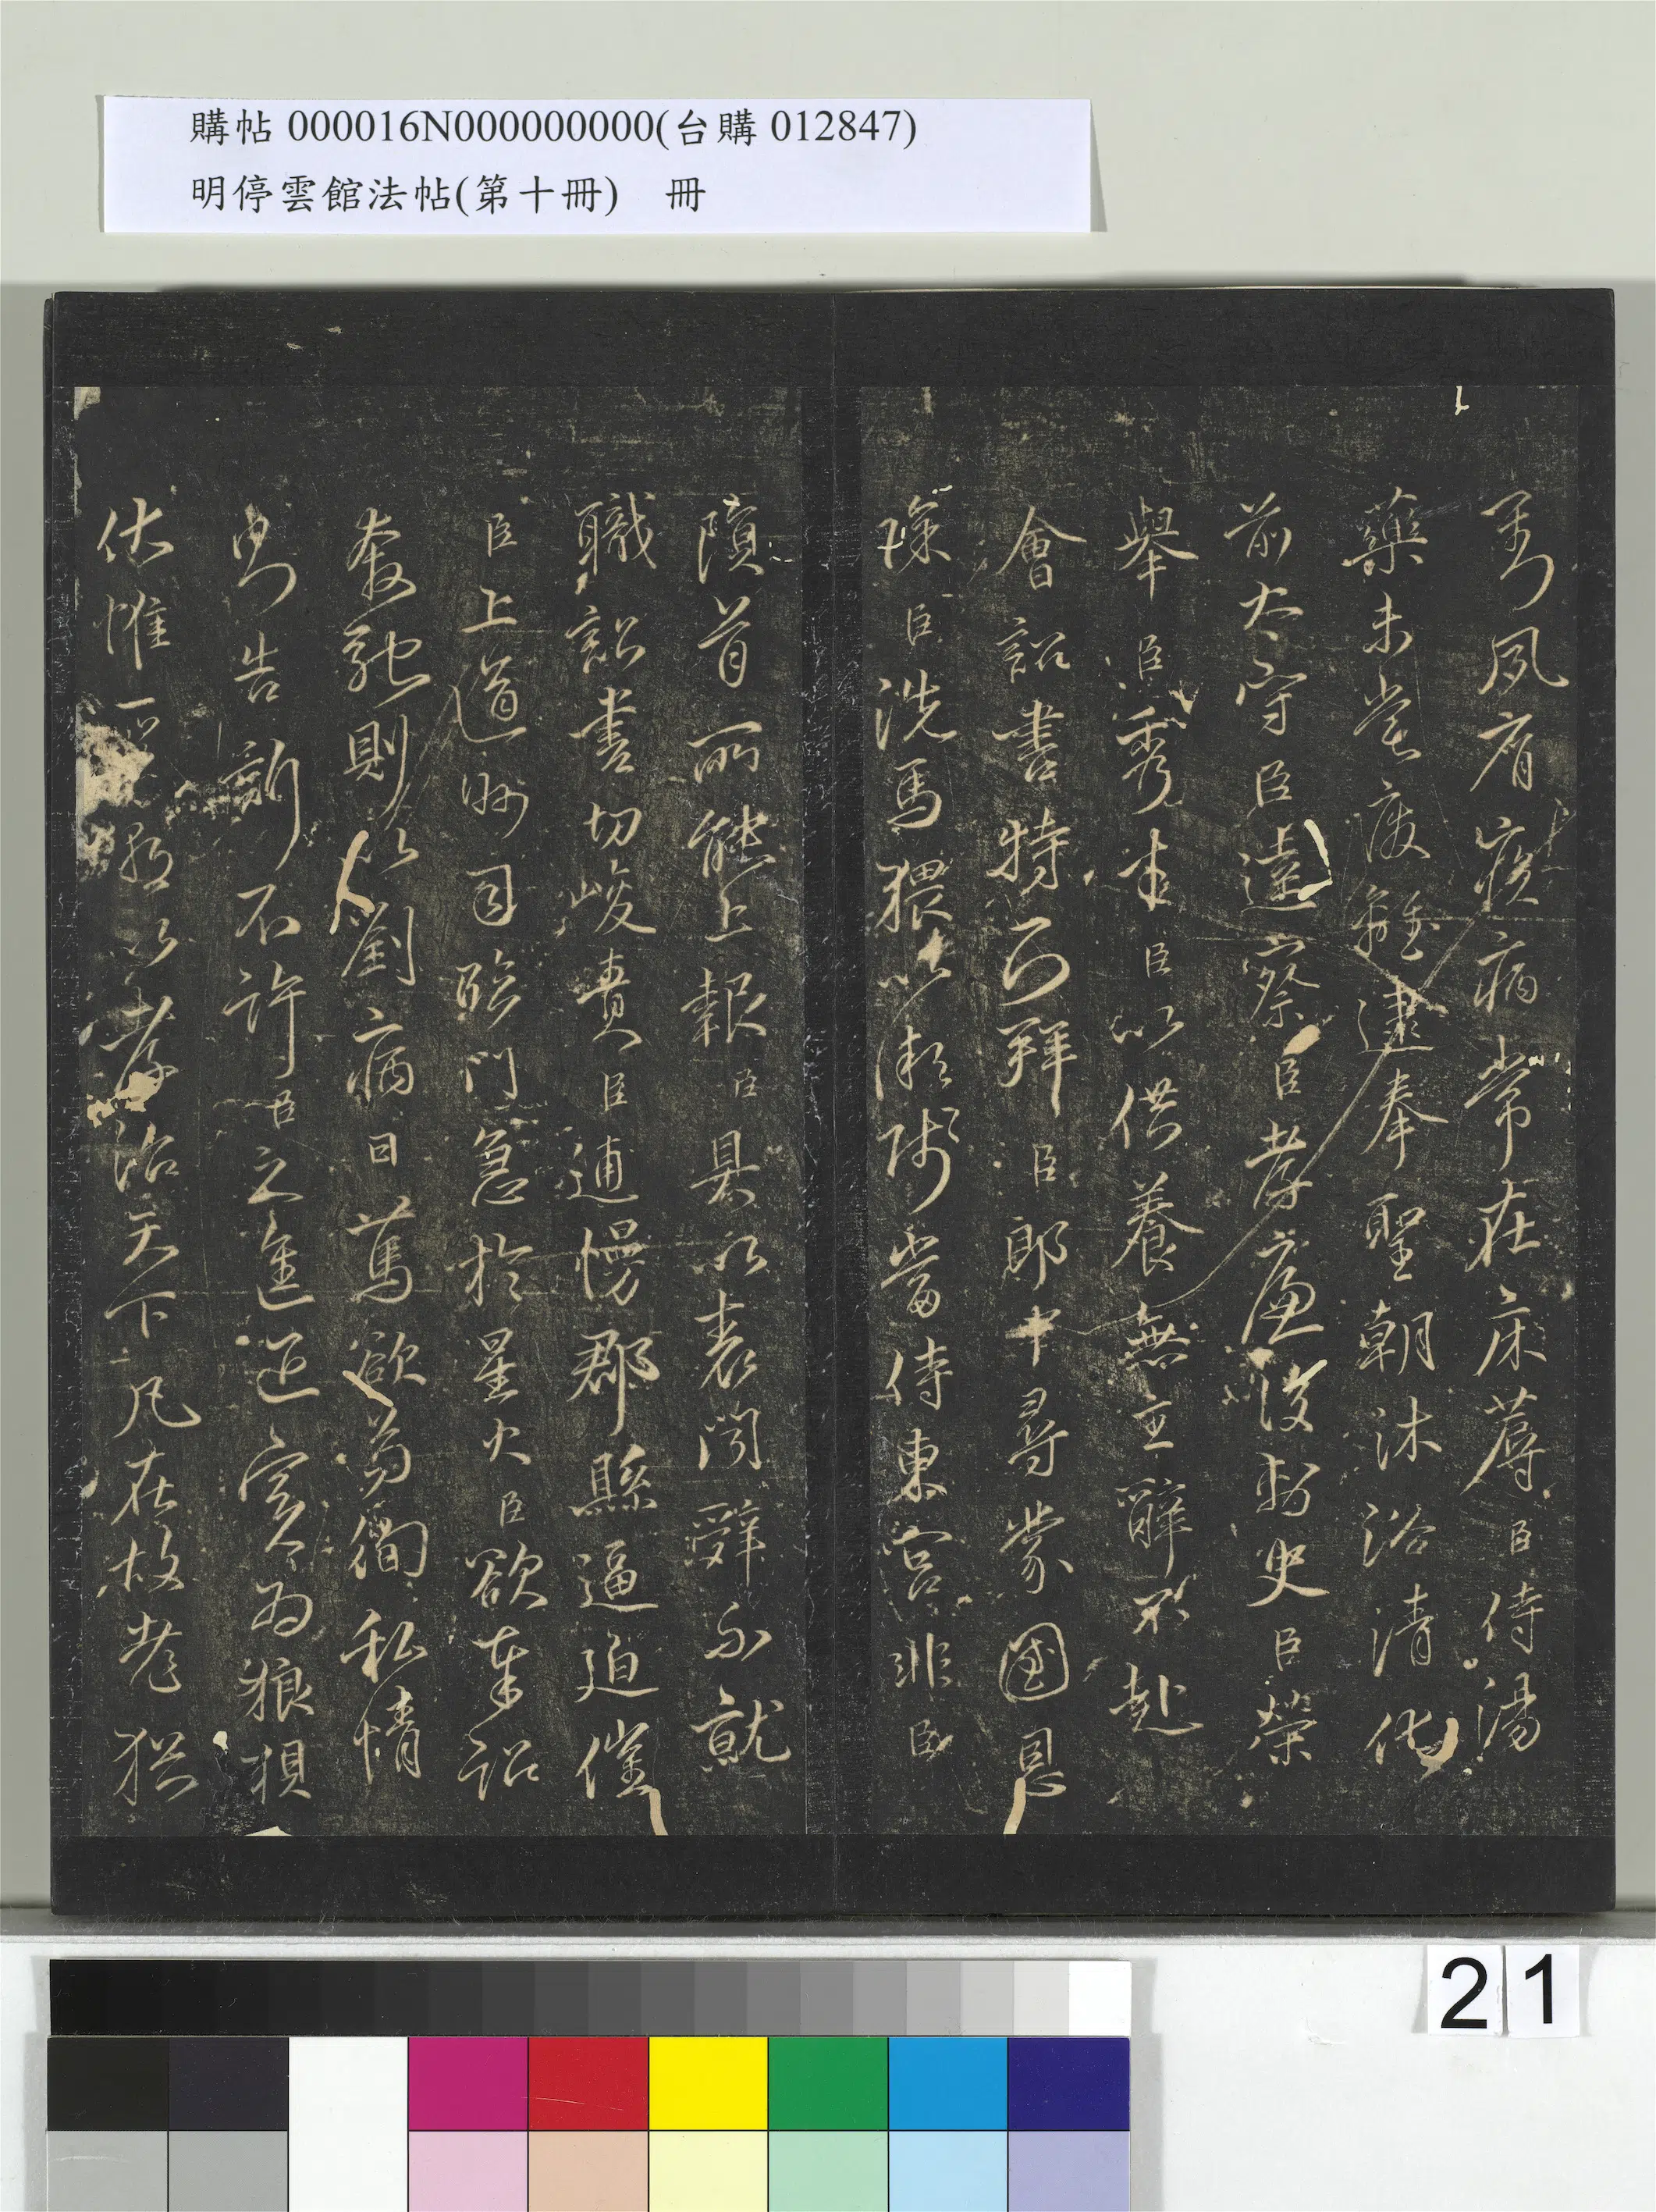 購帖 000016N000000000(台購 012847)
明停雲館法帖(第十冊) 冊
劉夙有疾病常在床蓐臣侍湯
藥未嘗廢離逮奉聖朝沐浴清化
前太守臣逵察臣孝廉後刺史臣榮
舉臣秀才臣以供養無主辭不赴
會詔書特下拜臣郎中尋蒙國恩
除臣洗馬猥以微賤當侍東宮非臣
隕首所能上報臣具以表聞辭不就
職詔書切峻責臣逋慢郡縣逼迫催
臣上道州司臨門急於星火臣欲奉詔
奔馳則以劉病日篤欲苟徇私情
則告訴不許臣之進退實為狼狽
伏惟聖朝以孝治天下凡在故老猶
21